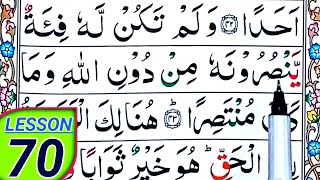 اَحَدًا ﴿٤٢﴾ وَلَمْ تَكُنْ لَّهٗ فِئَةٌ
يَّنْصُرُوْنَهٗ مِنْ دُوْنِ اللّٰهِ وَمَا
مُنْتَصِرًا ﴿٤٣﴾ هُنَالِكَ
الْحَقِّ هُوَ خَيْرٌ ثَوَابًا
LESSON
70